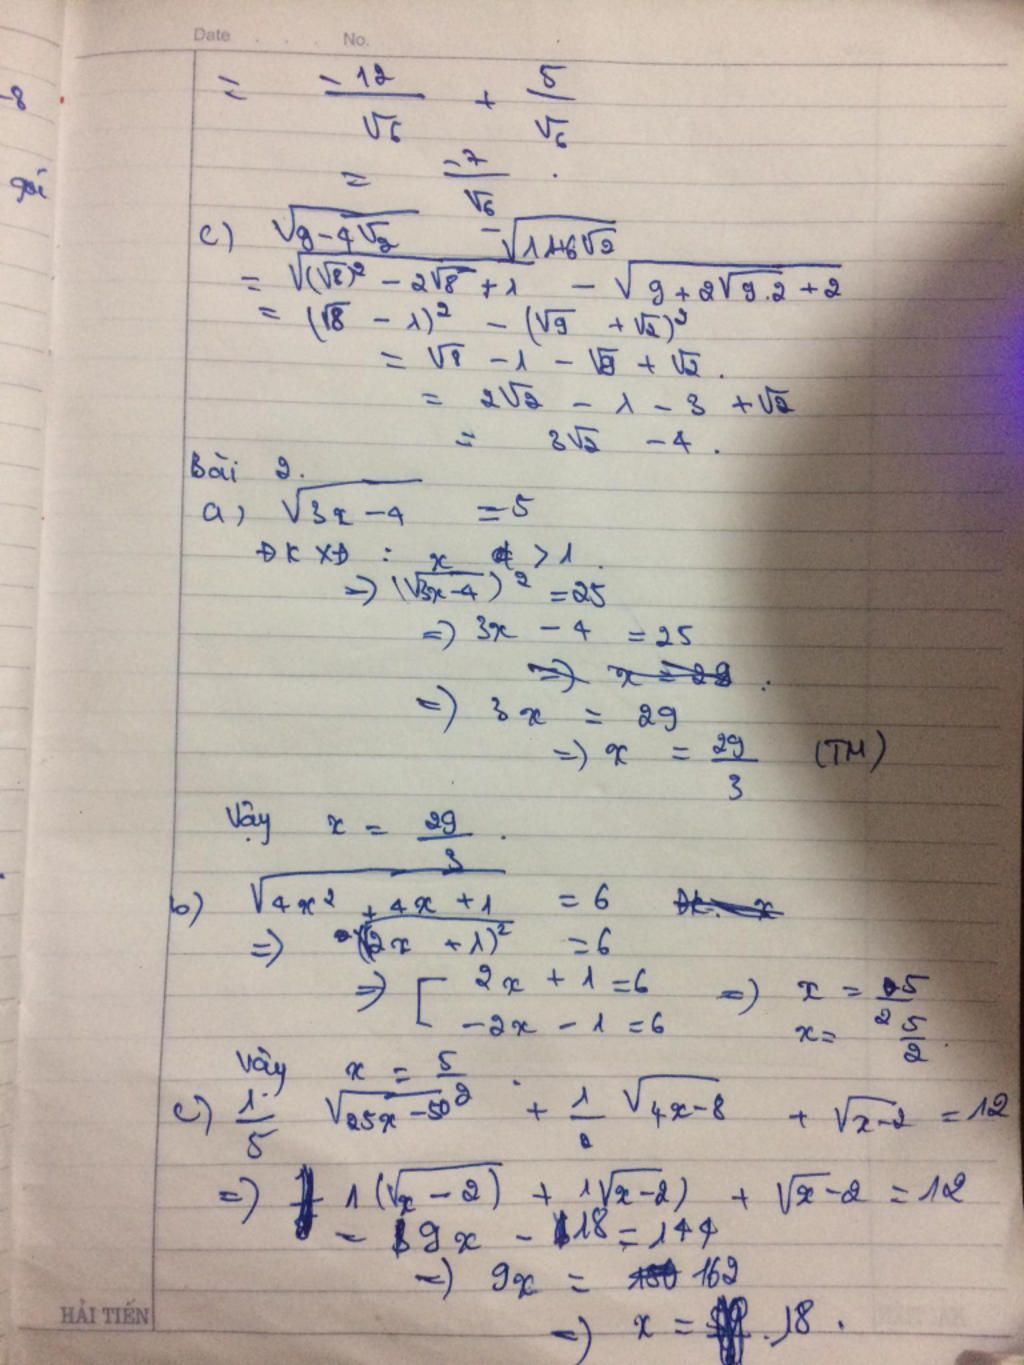 Date . . . No.
-8
= -12/√6 + 5/√6
= -7/√6 .
c) √(9-4√2) - √(11+6√2)
= √((√8)² - 2√8 + 1) - √(9 + 2√9.2 + 2)
= (√8 - 1)² - (√9 + √2)²
= √8 - 1 - √9 + √2 .
= 2√2 - 1 - 3 + √2
= 3√2 - 4 .
Bài 2.
a) √(3x-4) = 5
ĐKXĐ : x > 1 .
=) (√(3x-4))² = 25
=) 3x - 4 = 25
=) x = 29 .
=) 3x = 29
=) x = 29/3 (TM)
Vậy x = 29/3 .
b) √(4x² + 4x + 1) = 6 ĐK: x
=) √(2x + 1)² = 6
=) [ 2x + 1 = 6 =) x = 5/2
-2x - 1 = 6 x = 5/2 .
Vậy x = 5/2 .
c) 1/5 √(25x-50) + 1/2 √(4x-8) + √(x-2) = 12
=) 1(√(x-2)) + 1√(x-2) + √(x-2) = 12
= 9x - 18 = 144
=) 9x = 162
=) x = 18 .
HẢI TIẾN